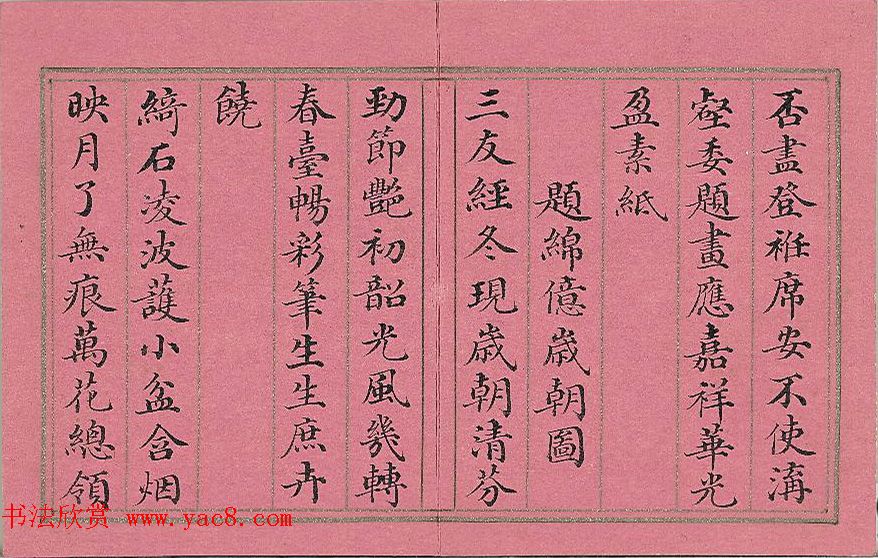 否盡登袵席安不使溝
壑委題畫應嘉祥華光
盈素紙
題綿億歲朝圖
三友經冬現歲朝清芬
勁節艷初韶光風幾轉
春臺暢彩筆生生庶卉
饒
綺石凌波護小盆含烟
映月了無痕萬花總領
书法欣赏 www.yac8.com